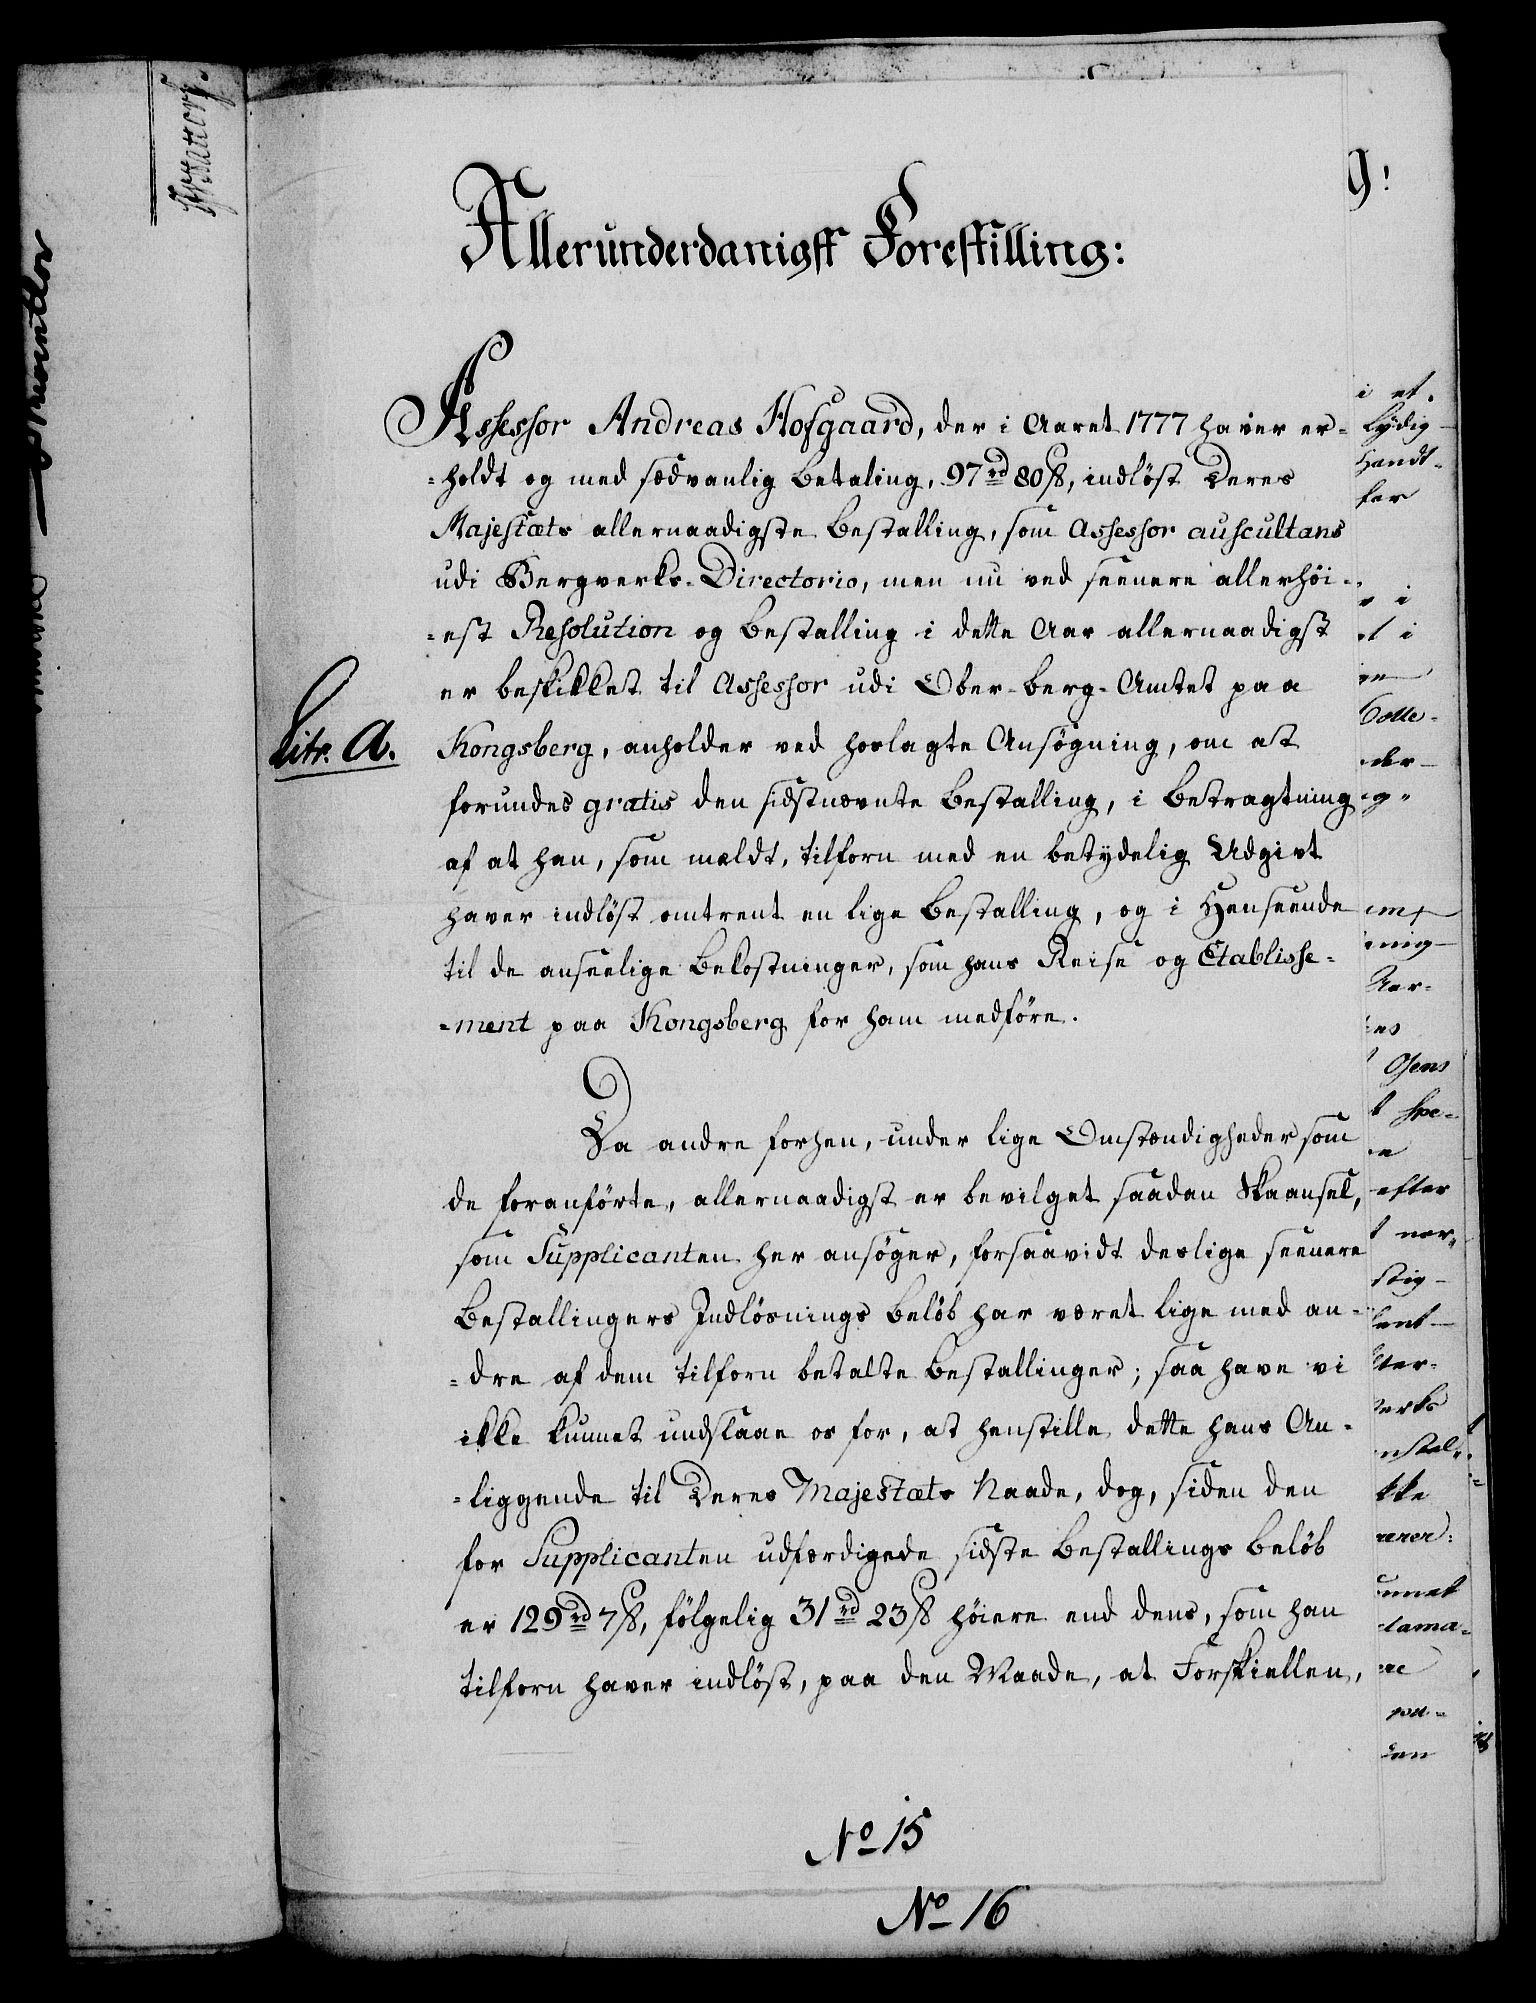 Allerunderdanigst Forestilling:
Assessor Andreas Hofgaard, der i Aaret 1777 haver er-
-holdt og med sædvanlig Betaling, 97 rd 80 ß, indløst Deres
Majestæts allernaadigste Bestalling, som Assessor auscultans
udi Bergverks-Directorio, men nu ved seenere allerhöi-
-est Resolution og Bestalling i dette Aar allernaadigst
er beskikket til Assessor udi Ober-berg-Amtet paa
Litr. A.
Kongsberg, anholder ved hoslagte Ansøgning, om at
forundes gratis den sidstnævnte Bestalling, i Betragtning
af at han, som meldt, tilforn med en betydelig Udgivt
haver indløst omtrent en lige Bestalling, og i Henseende
til de anseelige Bekostninger, som hans Reise og Etablisse-
-ment paa Kongsberg for ham medföre.
Da andre forhen, under lige Omstændigheder som
de foranförte, allernaadigst er bevilget saadan Skaansel,
som Supplicanten her ansøger, forsaavidt deslige seenere
Bestallingers Indlösnings Belöb har været lige med an-
-dre af dem tilforn betalte Bestallinger; saa have vi
ikke kunnet undslaae os for, at henstille dette hans An-
-liggende til Deres Majestæts Naade, dog, siden den
for Supplicanten udfærdigede sidste Bestallings Belöb
er 129 rd 7 ß, fölgelig 31 rd 23 ß höiere end dens, som han
tilforn haver indlöst, paa den Maade, at Forskiellen,
No 15
No 16
9:
i et
lydig-
Handt-
ler
efter